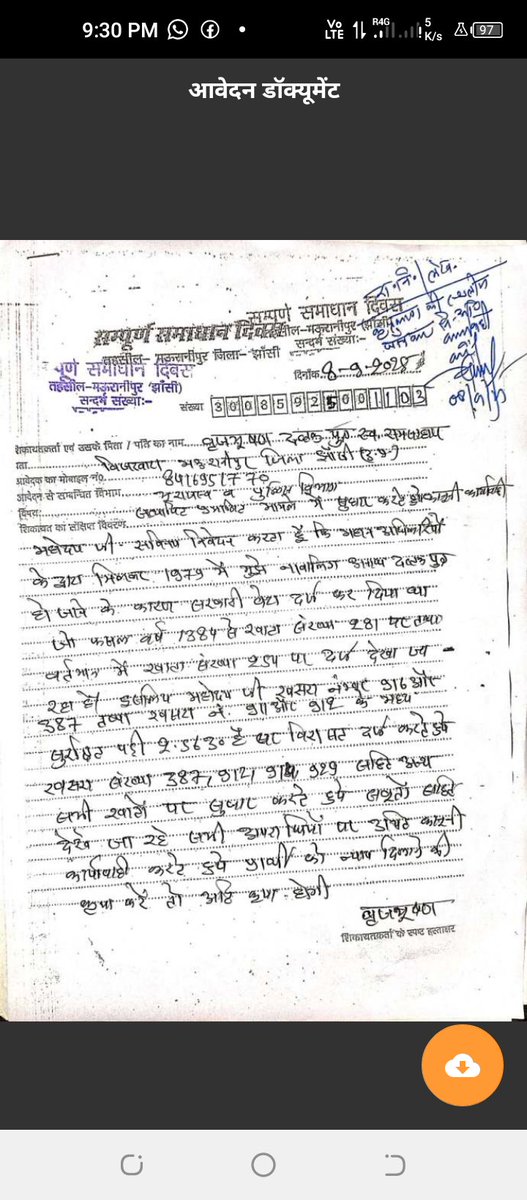 9:30 PM
Vo LTE R4G 5 K/s 97
आवेदन डॉक्यूमेंट
सम्पूर्ण समाधान दिवस
सम्पूर्ण समाधान दिवस
तहसील-मऊरानीपुर जिला-झाँसी
सन्दर्भ संख्या:-
पूर्ण समाधान दिवस
तहसील-मऊरानीपुर (झाँसी)
सन्दर्भ संख्या:-
दिनाँक
संख्या 30085925001103
शिकायतकर्ता एवं उसके पिता / पति का नाम बृजभूषण दत्तक पुत्र स्व.
पता मऊरानीपुर जिला झाँसी (उ.प्र.)
आवेदक का मोबाइल नं0
आवेदन से सम्बन्धित विभाग व पुलिस विभाग
विषय: मामले में सुधार करते
शिकायत का संक्षिप्त विवरण
महोदय जी सविनय निवेदन करता है कि
के द्वारा 1979 में मुझे नाबालिग अनाथ दत्तक पुत्र
हो जाने के कारण सरकारी दर्ज कर दिया था
जो फसल वर्ष 1384 से खाता संख्या 281 पर तथा
वर्तमान में खाता संख्या 254 पर दर्ज देखा जा
रहा है। इसलिए महोदय जी खसरा नम्बर 916 और
387 तथा खसरा नं. 911 और 912 के मध्य
सुरक्षित पड़ी 2.563 है पर विरासत दर्ज करते हुये
खसरा संख्या 387, 912, 929 सहित अन्य
सभी खातों पर सुधार करते हुये सबूतों सहित
देखे जा रहे सभी अपराधियों पर उचित कानूनी
कार्यवाही करते हुये प्रार्थी को न्याय दिलाने की
कृपा करें तो अति कृपा होगी
बृजभूषण
शिकायतकर्ता के स्पष्ट हस्ताक्षर